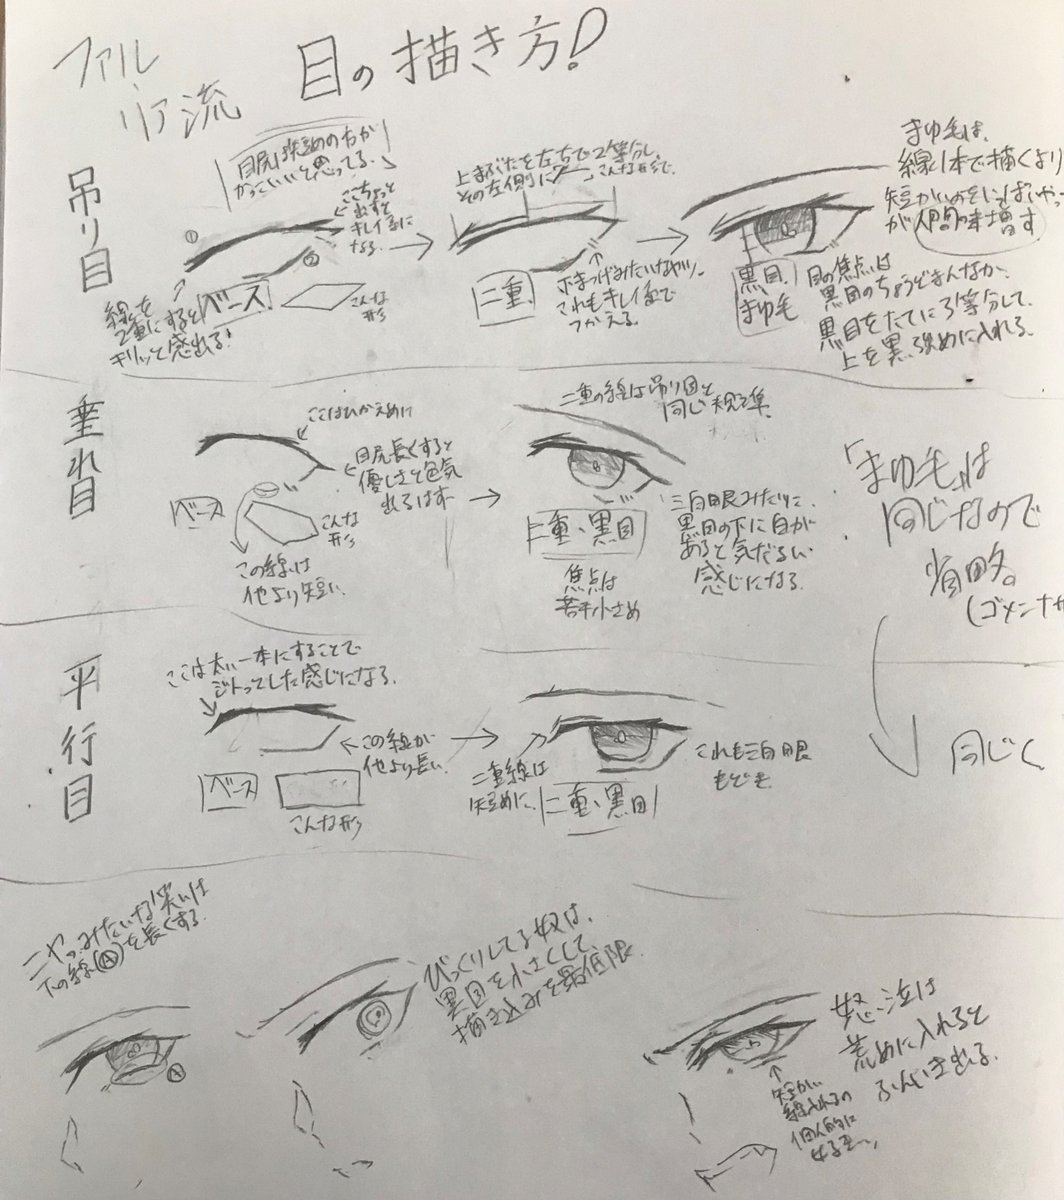 ファルリア流
目の描き方!
吊り目
目尻は短めの方が
かっこいいと思ってる。
ここちょっと
出すと
キレイに
なる。
①
②
線を
2重にすると
キリッと感出る!
ベース
こんな
形
上まぶたを左右で2等分し、
その左側に こんな形で。
二重
下まつげみたいなヤツ。
これもキレイまで
つかえる。
まゆ毛は、
線1本で描くより
短かいのをいっぱいやっ
が人間味増す
黒目、
まゆ毛
目の焦点は
黒目のちょうどまんなか。
黒目をたてに3等分して、
上を黒強めに入れる。
垂れ目
ここはひかえめに
目尻長くすると
優しさと色気
出るはず
ベース
こんな
形
この線は
他より短い
二重の線は吊り目と
同じ規準。
二重、黒目
焦点は
若干小さめ
三白眼みたいに、
黒目の下に白が
あると気だるい
感じになる。
「まゆ毛」は
同じなので
省略。
(ゴメンナサ
平行目
ここは太い一本にすることで
ジトってした感じになる。
この線が
他より長い
ベース
こんな形
二重線は
短めに。
二重、黒目
これも三白眼
もどき
同じく
ニヤっみたいな笑いは
下の線(A)を長くする。
A
びっくりしてる奴は、
黒目を小さくして、
描き込みを最低限。
怒、泣は
荒めに入れると
ふんいき出る。
短かい
線入れるの
個人的に